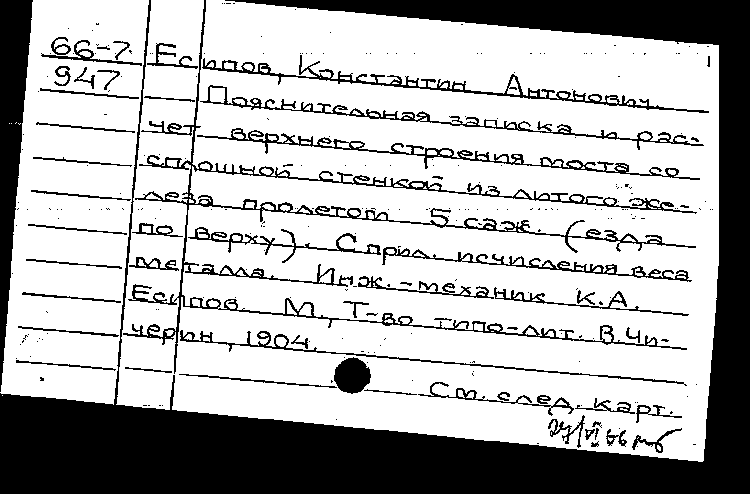 66-7 Есипов, Константин Антонович.
947 Пояснительная записка и рас-
чет верхнего строения моста со
сплошной стенкой из литого же-
леза пролетом 5 саж. (езда
по верху). С прил. исчисления веса
металла. Инж.-механик К.А.
Есипов. М., Т-во типо-лит. В.Чи-
черин, 1904.
См. след. карт.
27/VI 66